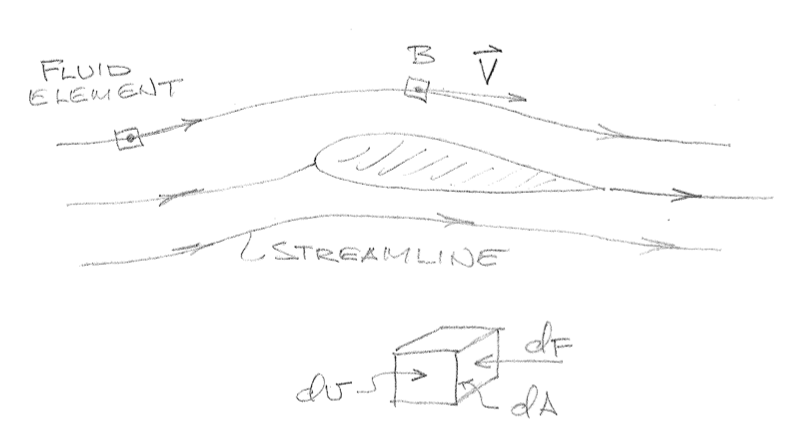 B
V
FLUID
ELEMENT
STREAMLINE
dF
dv
dA